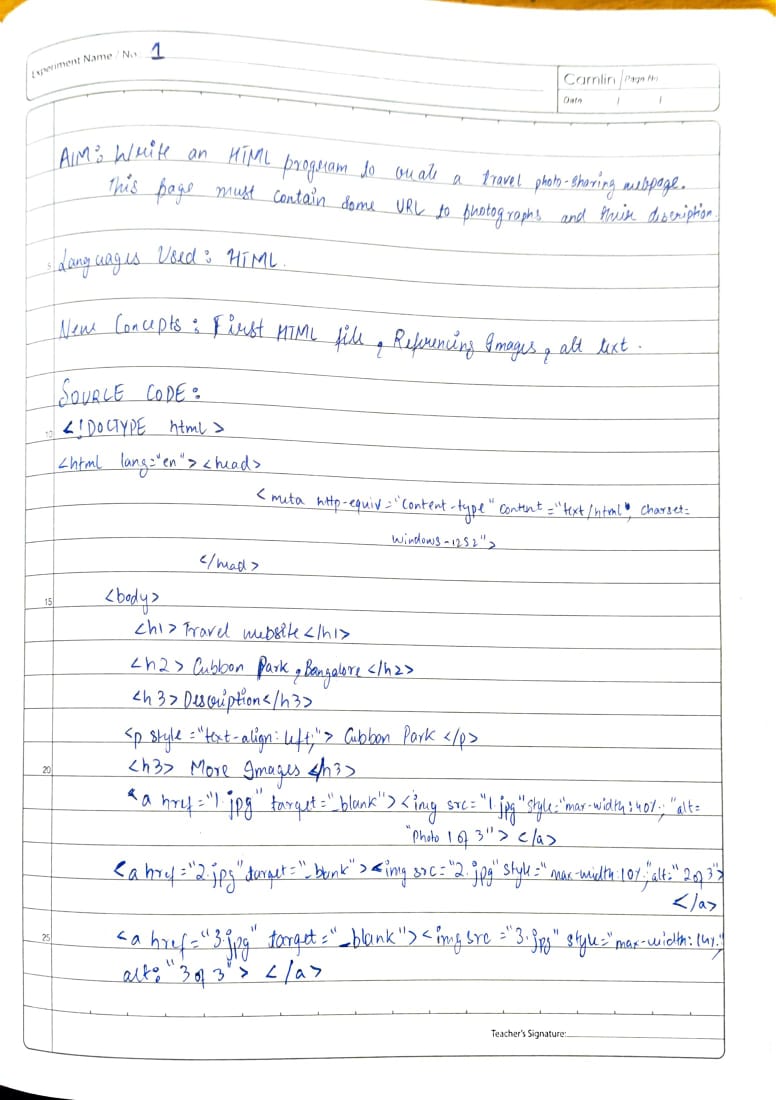 Experiment Name / No. 1
Camlin Page No.
Date / /
AIM: Write an HTML program to create a travel photo-sharing webpage.
This page must contain some URL to photographs and their discription.
5 Languages Used: HTML.
New Concepts: First HTML file, Referencing Images, alt text.
SOURCE CODE:
10 <!DOCTYPE html>
<html lang="en"> <head>
<meta http-equiv="content-type" content="text/html", charset=
windows-1252">
</head>
15 <body>
<h1> Travel website </h1>
<h2> Cubbon Park, Bangalore </h2>
<h3> Description</h3>
<p style="text-align: left;"> Cubbon Park </p>
20 <h3> More Images </h3>
<a href="1.jpg" target="_blank"> <img src="1.jpg" style="max-width:40%;" alt=
"Photo 1 of 3"> </a>
<a href="2.jpg" target="_blank"> <img src="2.jpg" style="max-width:10%;" alt="2 of 3">
</a>
25 <a href="3.jpg" target="_blank"> <img src="3.jpg" style="max-width:
alt: "3 of 3"> </a>
Teacher's Signature: